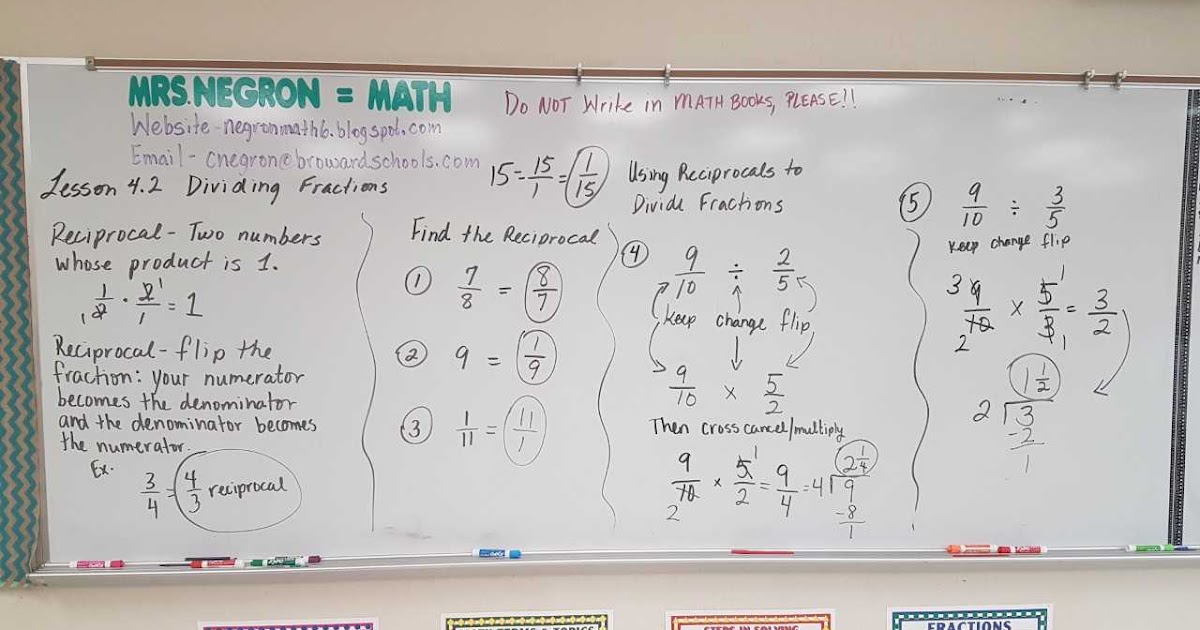 MRS. NEGRON = MATH
Do NOT Write in MATH BOOKS, PLEASE!!
Website - negronmath6.blogspot.com
Email - cnegron@browardschools.com
Lesson 4.2 Dividing Fractions
15 = 15/1 = 1/15
Reciprocal - Two numbers
whose product is 1.
1/2 · 2/1 = 1
1 1
Reciprocal - flip the
fraction: your numerator
becomes the denominator
and the denominator becomes
the numerator.
Ex.
3/4 = 4/3 reciprocal
Find the Reciprocal
① 7/8 = 8/7
② 9 = 1/9
③ 1/11 = 11/1
Using Reciprocals to
Divide Fractions
④ 9/10 ÷ 2/5
Keep change flip
9/10 × 5/2
Then cross cancel/multiply
9/10 × 5/2 = 9/4 = 4)9 2 1/4
2 1
-8
1
⑤ 9/10 ÷ 3/5
Keep change flip
3 1
9/10 × 5/3 = 3/2
2 1
1 1/2
2)3
-2
1
STEPS IN SOLVING
FRACTIONS